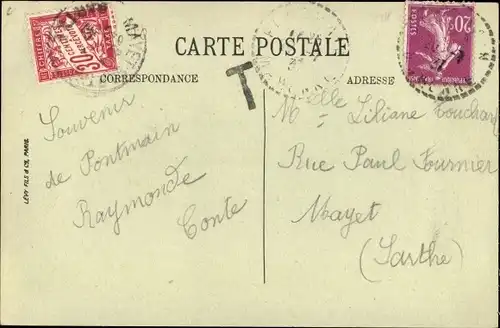 CARTE POSTALE
CORRESPONDANCE
ADRESSE
T
20c
POSTES
30
CENTIMES
A PERCEVOIR
MAYET
Souvenir
de Pontmain
Raymonde
Conte
Melle Liliane Touchard
Rue Paul Fournier
Mayet
(Sarthe)
LÉVY FILS & Cie, PARIS.